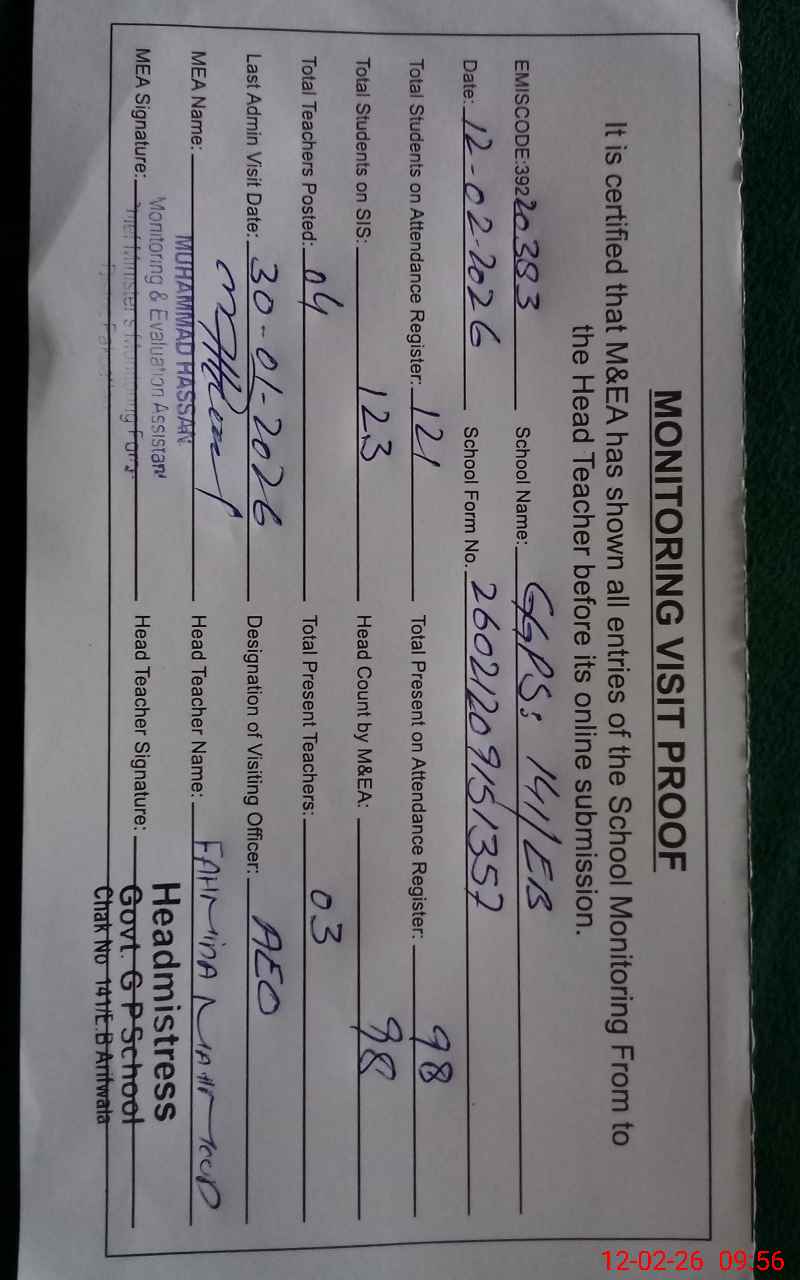 MONITORING VISIT PROOF
It is certified that M&EA has shown all entries of the School Monitoring From to
the Head Teacher before its online submission.
EMISCODE:39220383 School Name: GGPS: 141/EB
Date: 12-02-2026 School Form No. 26021209151357
Total Students on Attendance Register: 121 Total Present on Attendance Register: 98
Total Students on SIS: 123 Head Count by M&EA: 98
Total Teachers Posted: 04 Total Present Teachers: 03
Last Admin Visit Date: 30-01-2026 Designation of Visiting Officer: AEO
MEA Name: Head Teacher Name: FAHMIDA MAHMOOD
MUHAMMAD HASSAN
Monitoring & Evaluation Assistant
MEA Signature: Chief Minister's Monitoring Force Head Teacher Signature:
Headmistress
Govt. G P School
Chak No 141/E.B Arifwala
12-02-26 09:56